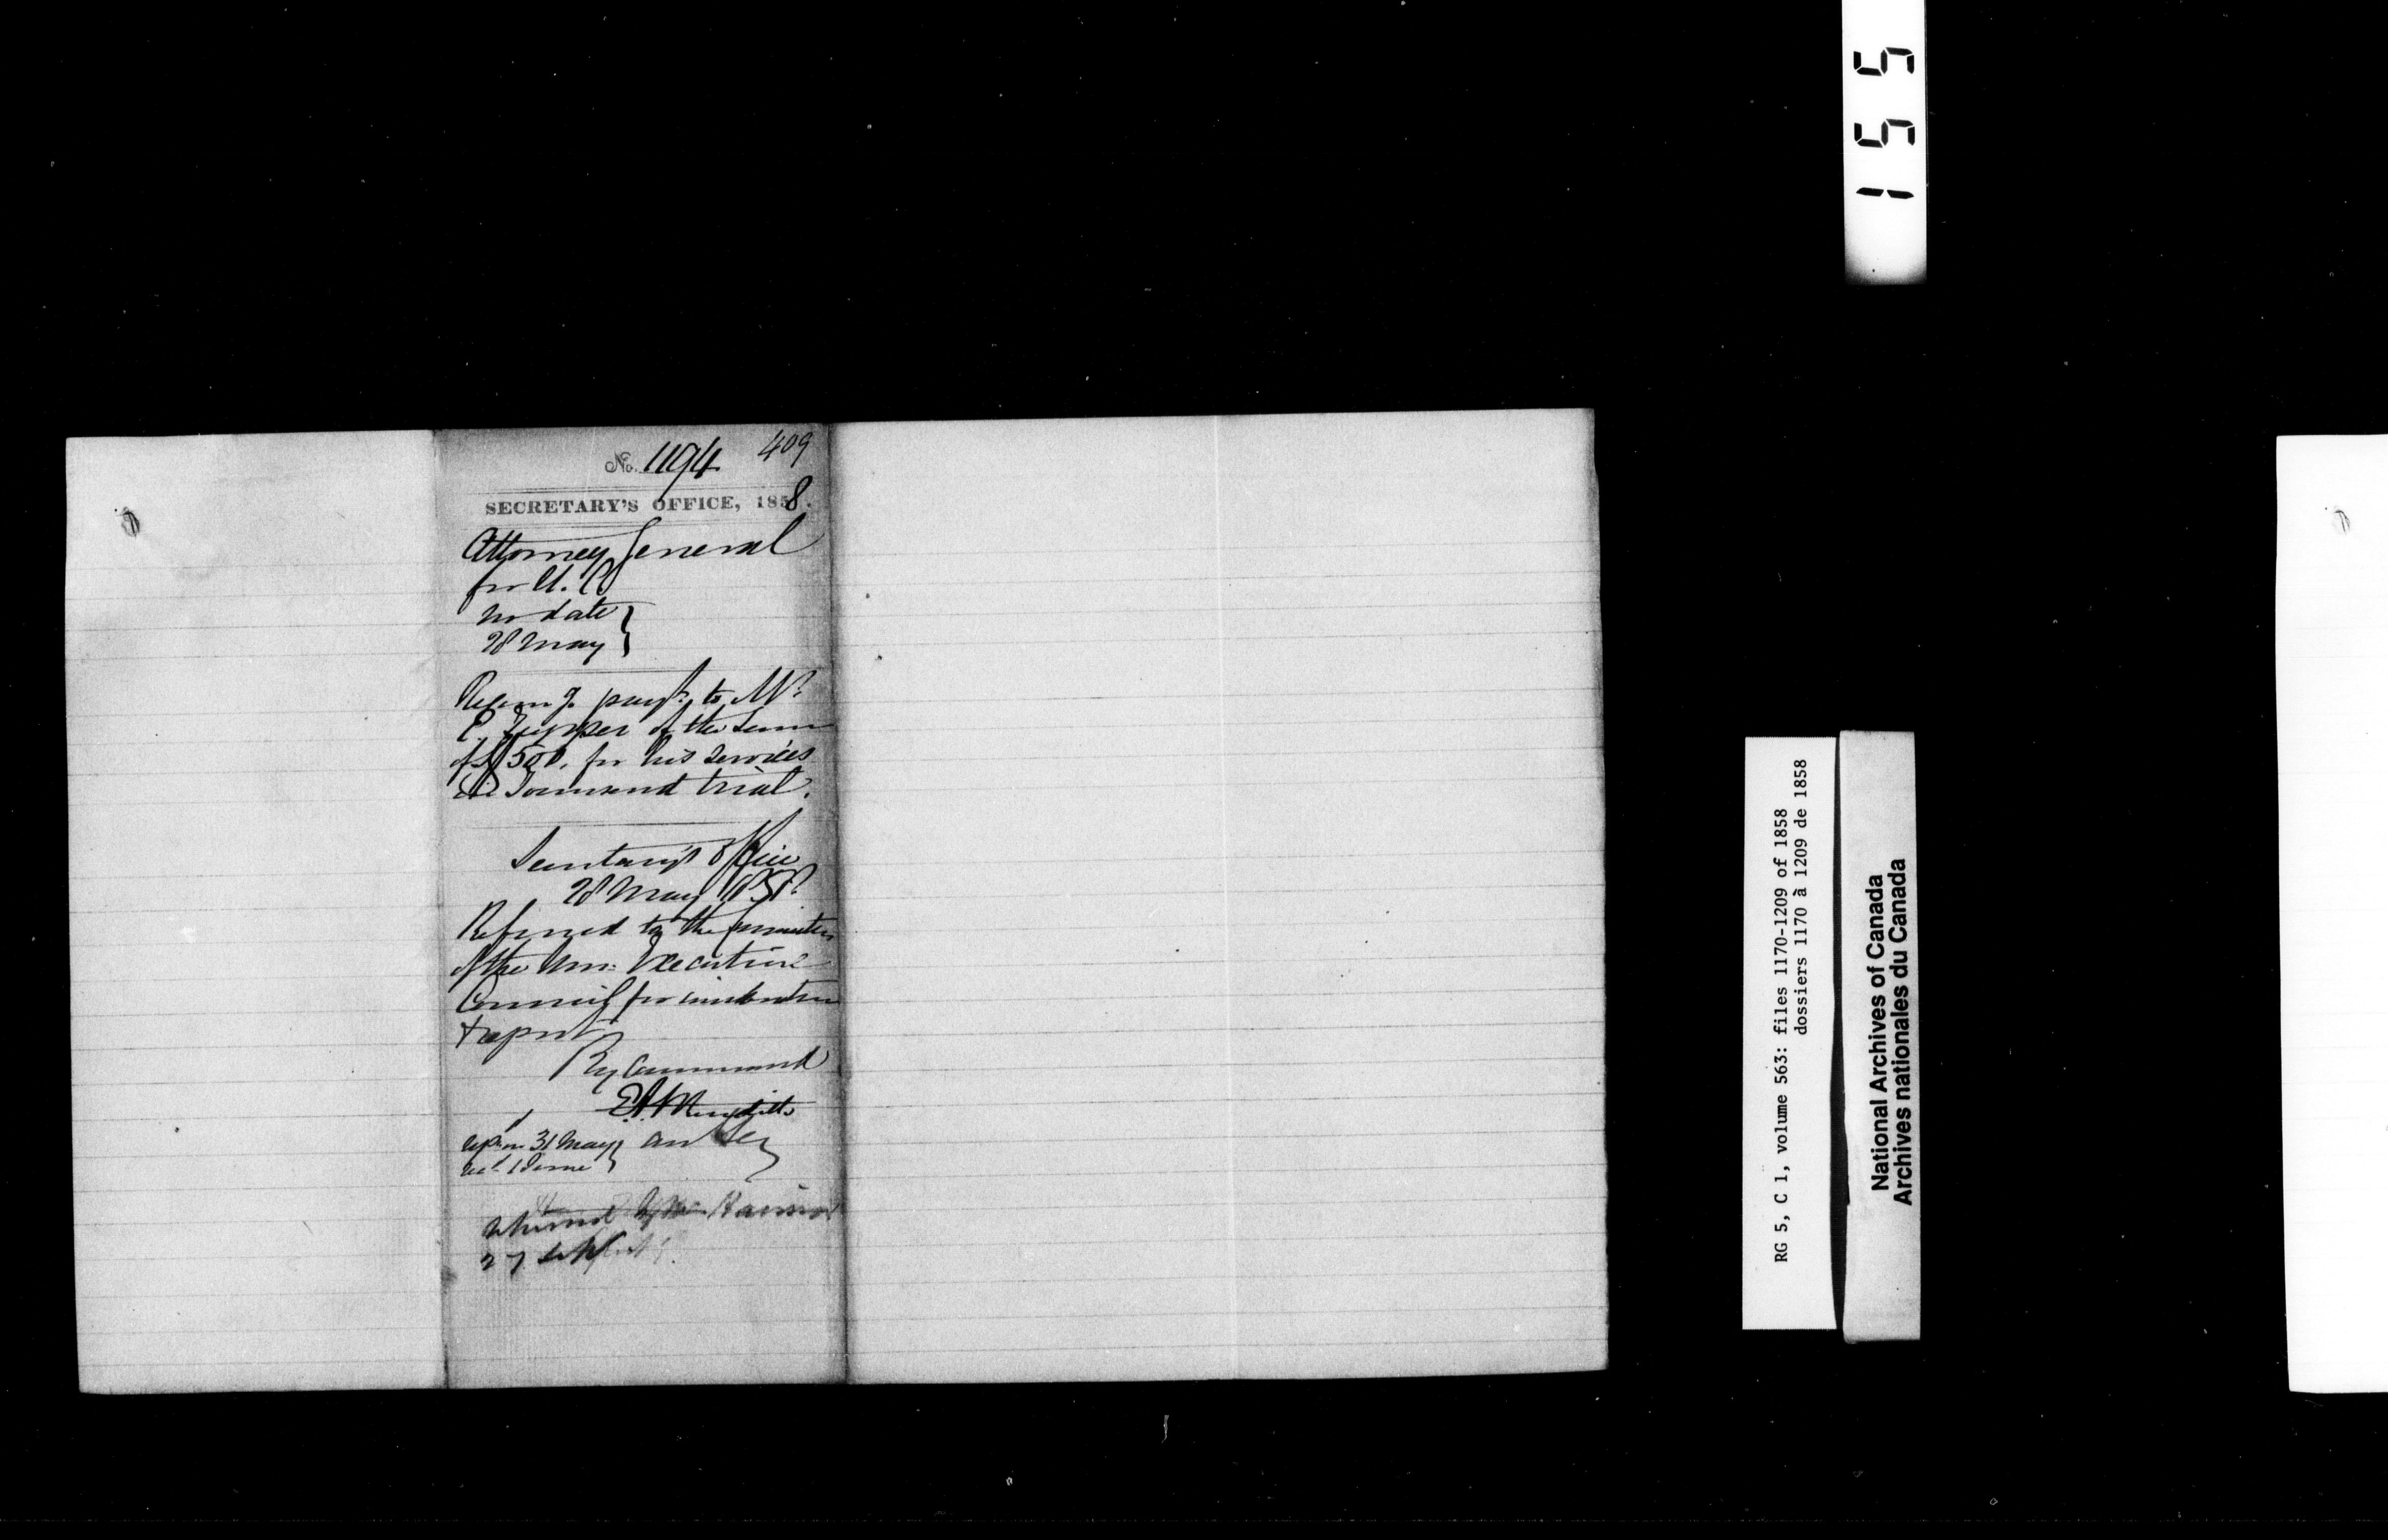 155
No. 1194 409
SECRETARY'S OFFICE, 1858.
Attorney General
for U. C
no date
28 May
payt. to Mr.
E. of the sum
of $500. for his services
in Townsend trial.
Secretary's Office
28 May 1858.
Referred to the Committee
of the Hon: Executive
Council for consideration
& report
By Command
E A Meredith
31 May
1 June
returned by Mr Harrison
27
RG 5, C 1, volume 563: files 1170-1209 of 1858
dossiers 1170 à 1209 de 1858
National Archives of Canada
Archives nationales du Canada